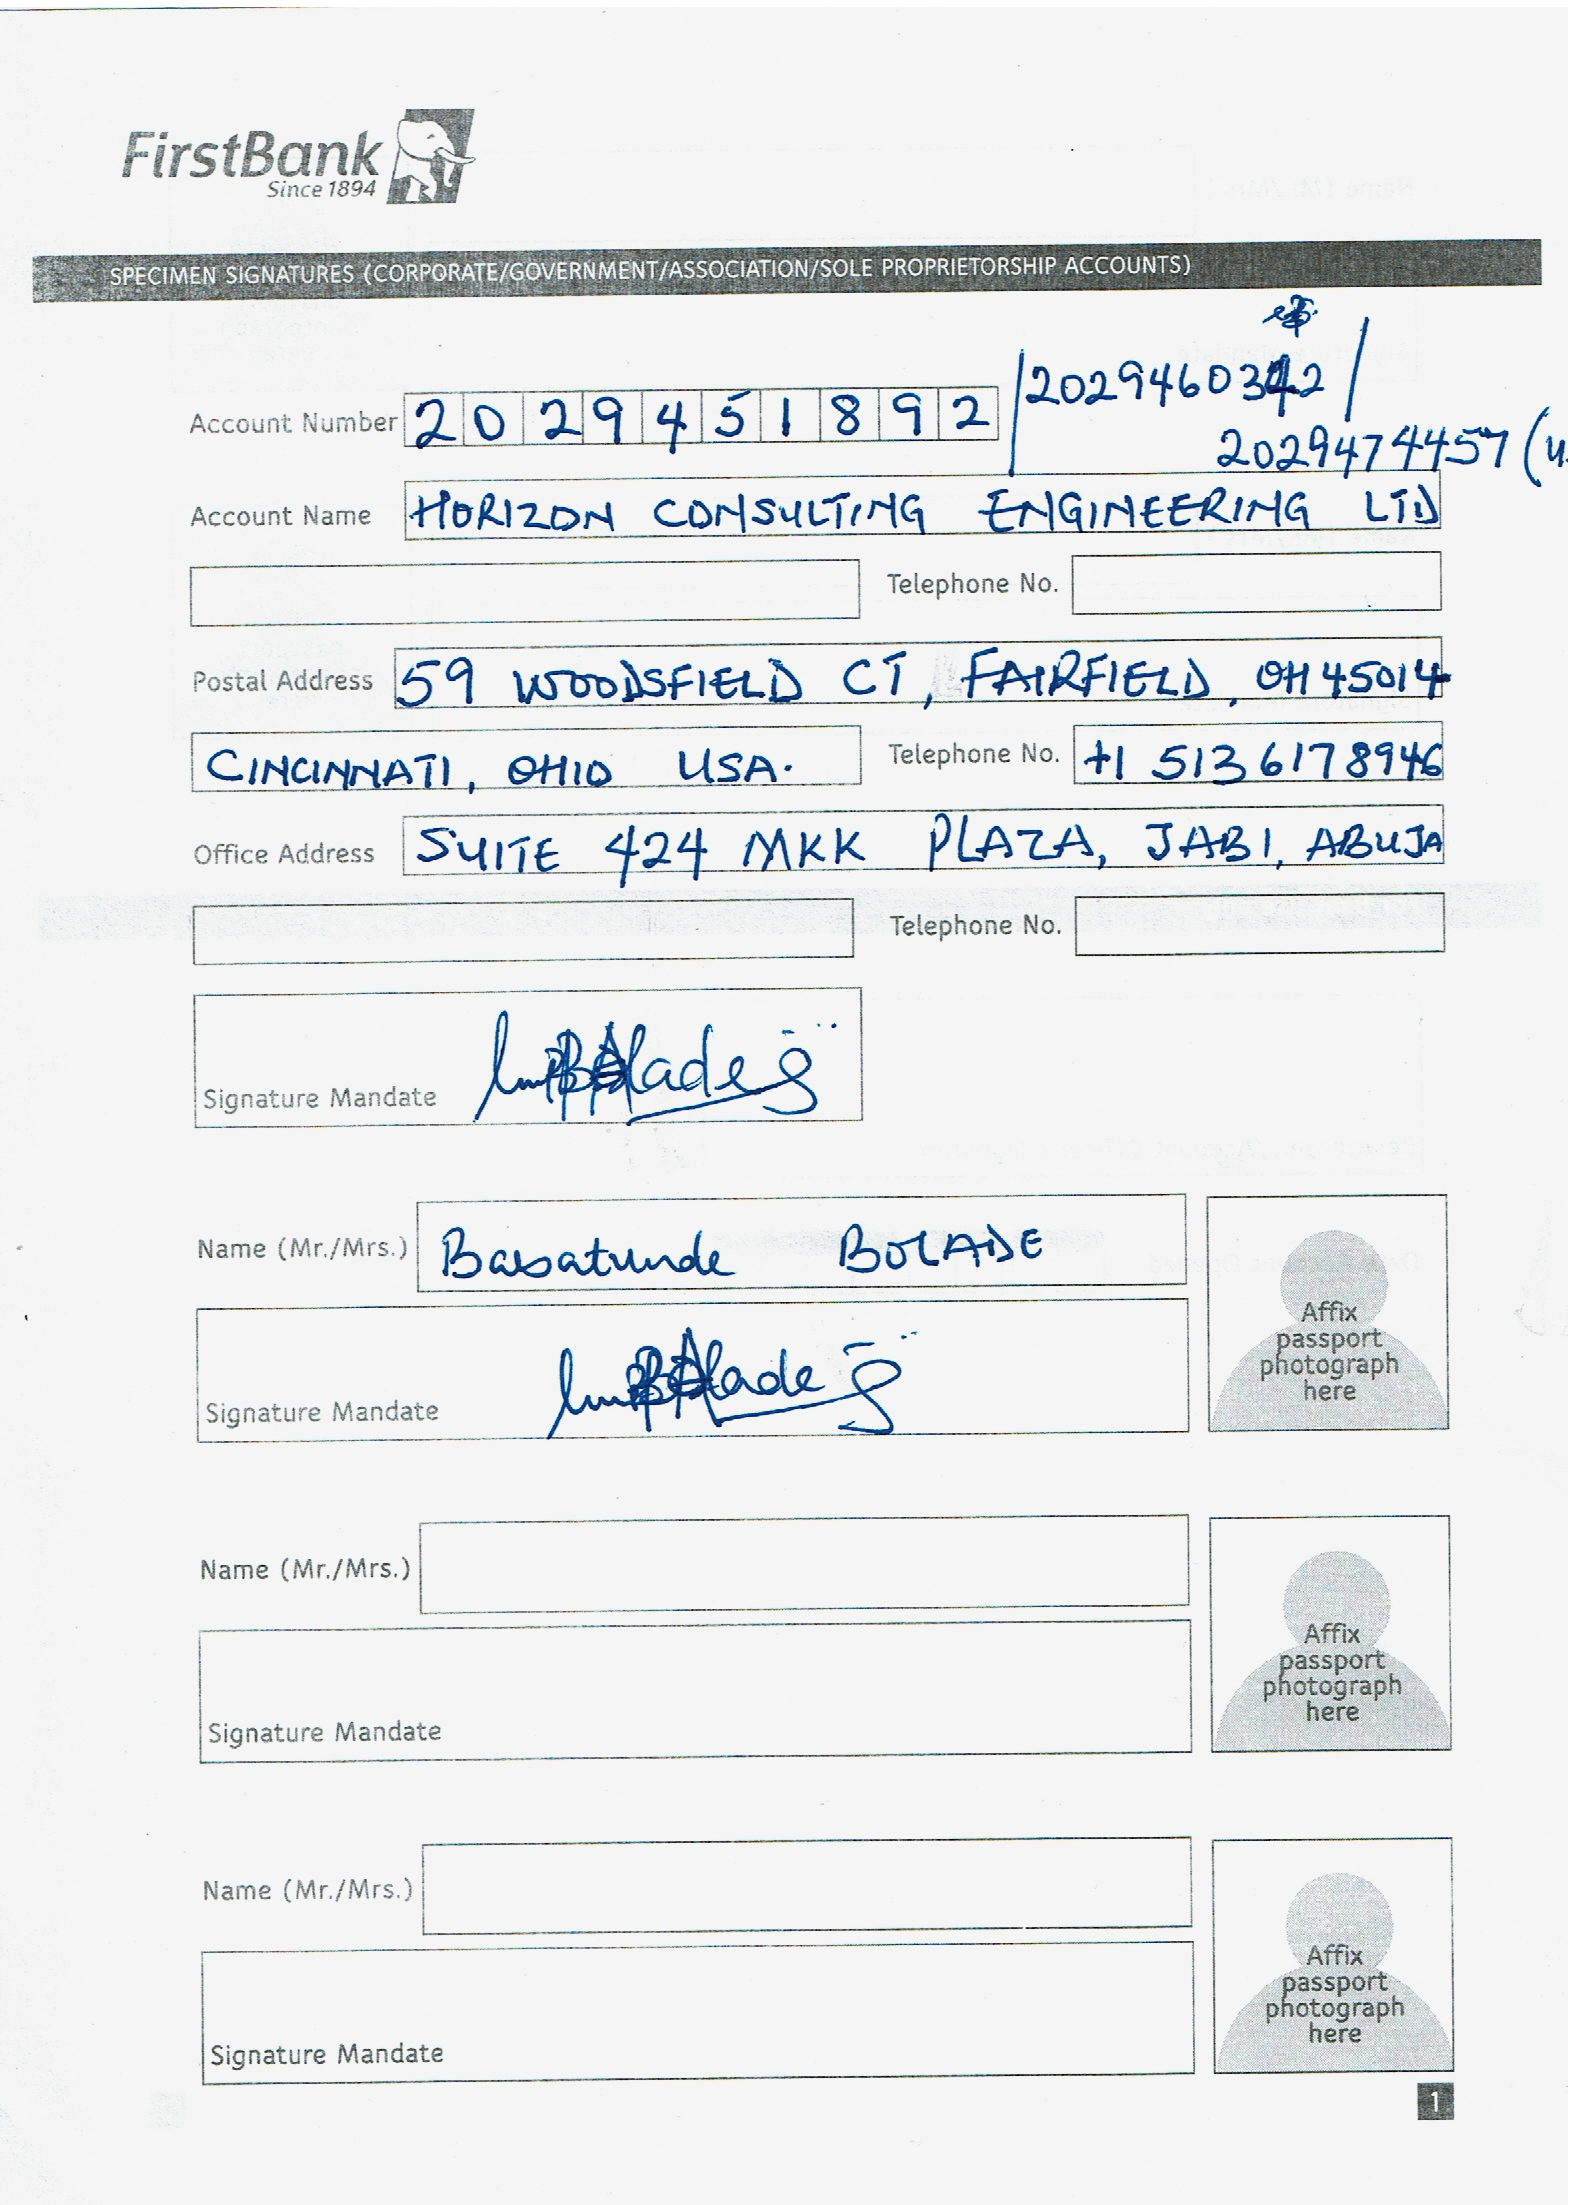 FirstBank
Since 1894
SPECIMEN SIGNATURES (CORPORATE/GOVERNMENT/ASSOCIATION/SOLE PROPRIETORSHIP ACCOUNTS)
Account Number 2029451892 / 2029460342 /
2029474457 (
Account Name HORIZON CONSULTING ENGINEERING LTD
Telephone No.
Postal Address 59 WOODSFIELD CT, FAIRFIELD, OH 45014
CINCINNATI, OHIO USA. Telephone No. +1 5136178946
Office Address SUITE 424 MKK PLAZA, JABI, ABUJA
Telephone No.
Signature Mandate
Name (Mr./Mrs.) Babatunde BOLADE
Signature Mandate
Affix
passport
photograph
here
Name (Mr./Mrs.)
Signature Mandate
Affix
passport
photograph
here
Name (Mr./Mrs.)
Signature Mandate
Affix
passport
photograph
here
1